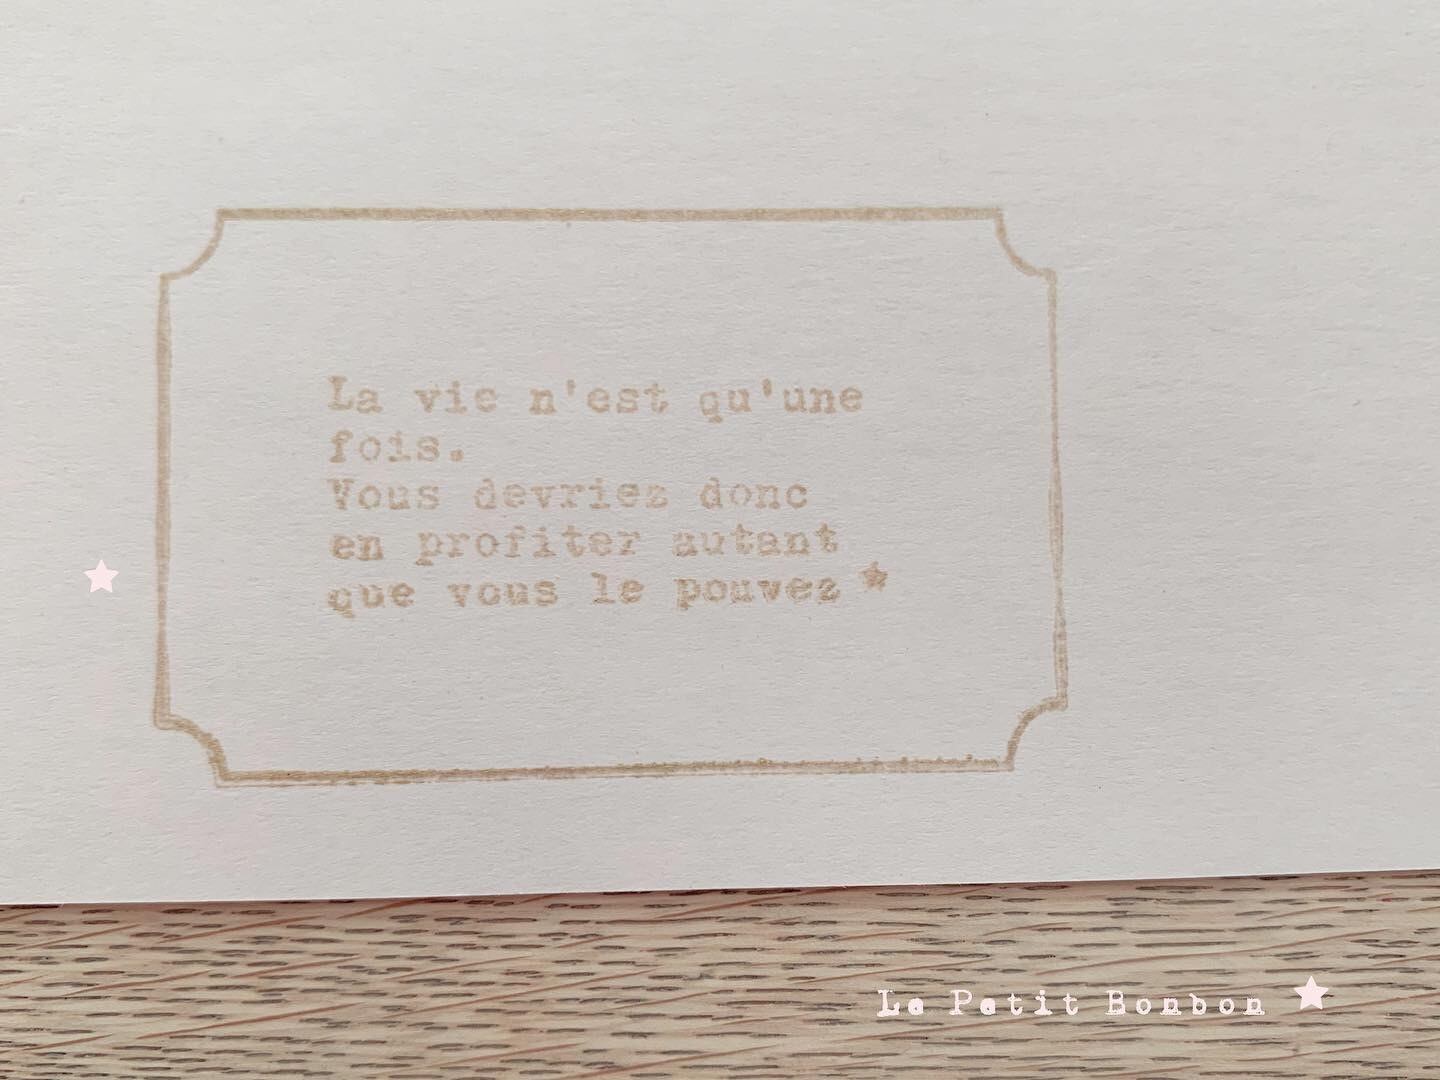 La vie n'est qu'une
fois.
Vous devriez donc
en profiter autant
que vous le pouvez ★
Le Petit Bonbon ★